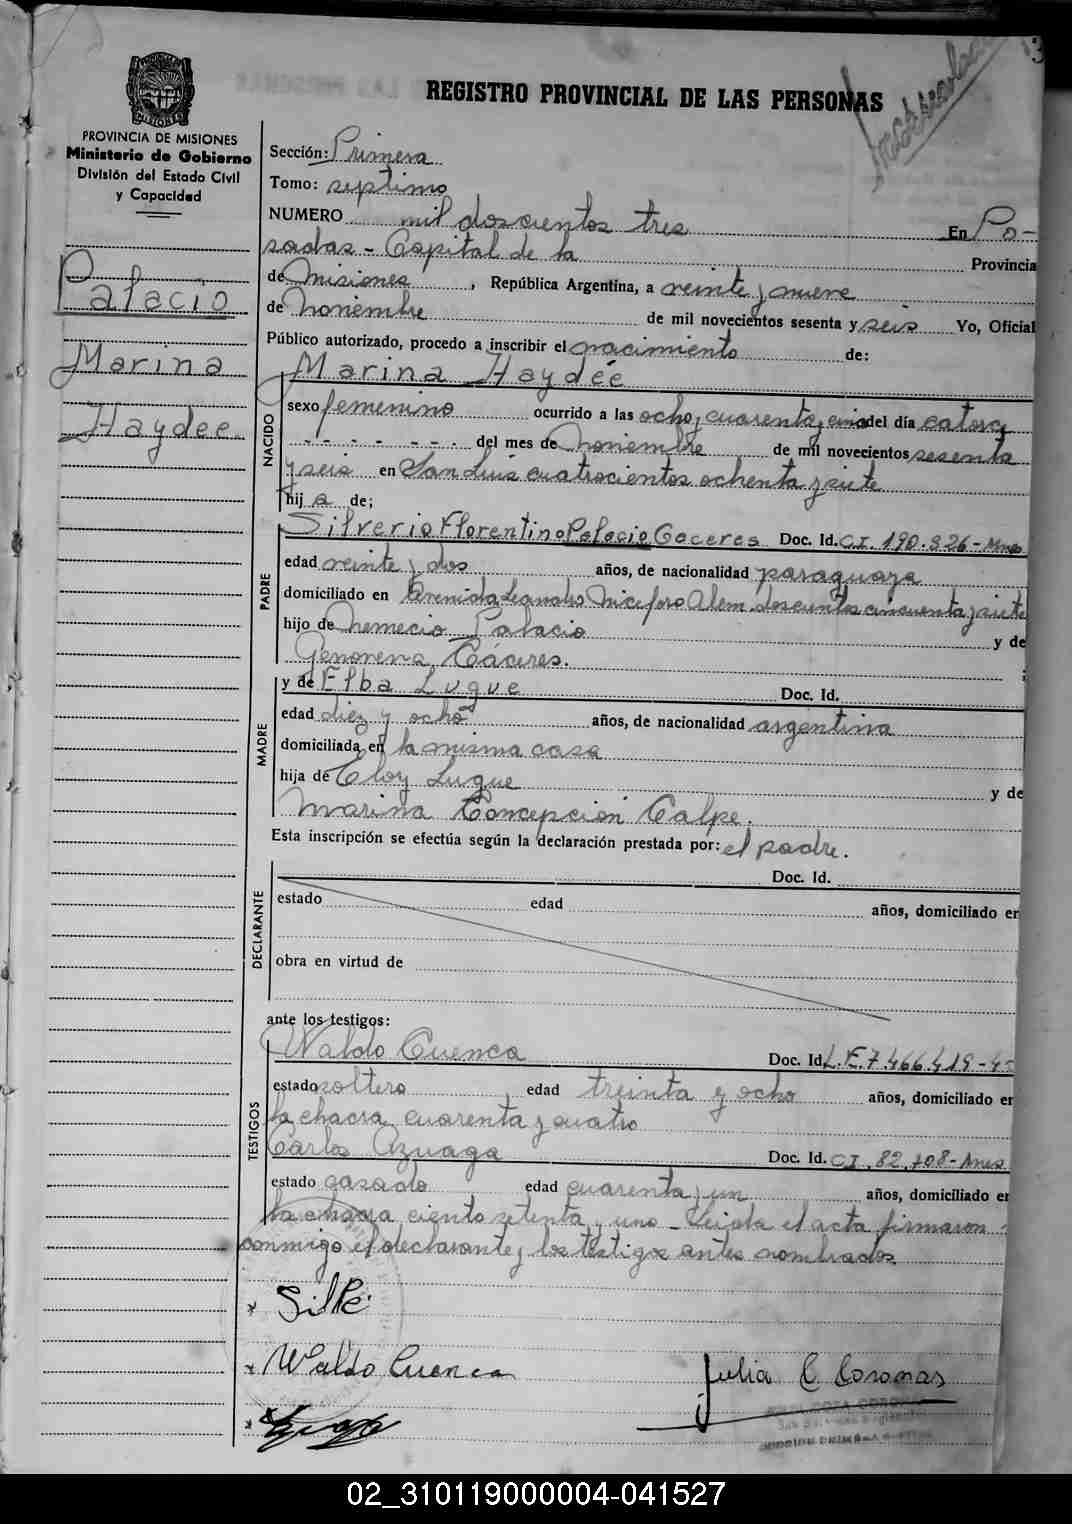 REGISTRO PROVINCIAL DE LAS PERSONAS
PROVINCIA DE MISIONES
Ministerio de Gobierno
División del Estado Civil
y Capacidad
Palacio
Marina
Haydee
Sección: Primera
Tomo: septimo
NUMERO mil doscientos tres En Po-
sadas - Capital de la Provincia
de Misiones, República Argentina, a veinte y nueve
de noviembre de mil novecientos sesenta y seis Yo, Oficial
Público autorizado, procedo a inscribir el nacimiento de:
Marina Haydée
NACIDO
sexo femenino ocurrido a las ocho, cuarenta y cinco del día catorce
- - - - - - - del mes de noviembre de mil novecientos sesenta
y seis en San Luis cuatrocientos ochenta y siete
hij a de;
PADRE
Silverio Florentino Palacio Caceres Doc. Id. CI. 190.326-Mnes
edad veinte y dos años, de nacionalidad paraguaya
domiciliado en Avenida Leandro Niceforo Alem doscientos cincuenta y siete
hijo de Nemecio Palacio y de
Genoveva Cáceres. ;
MADRE
y de Elba Luque Doc. Id.
edad diez y ocho años, de nacionalidad argentina
domiciliada en la misma casa
hija de Eloy Luque y de
Marina Concepción Calpe.
Esta inscripción se efectúa según la declaración prestada por: el padre.
DECLARANTE
Doc. Id.
estado edad años, domiciliado en
obra en virtud de
ante los testigos:
TESTIGOS
Waldo Cuenca Doc. Id. L.E.7.466.419-
estado soltero edad treinta y ocho años, domiciliado en
la chacra cuarenta y cuatro
Carlos Azuaga Doc. Id. CI. 82.708-Mnes
estado casado edad cuarenta y un años, domiciliado en
la chacra ciento setenta y uno - Leida el acta firmaron
conmigo el declarante y los testigos antes nombrados.
Waldo Cuenca
Julia C Coronas
02_310119000004-041527